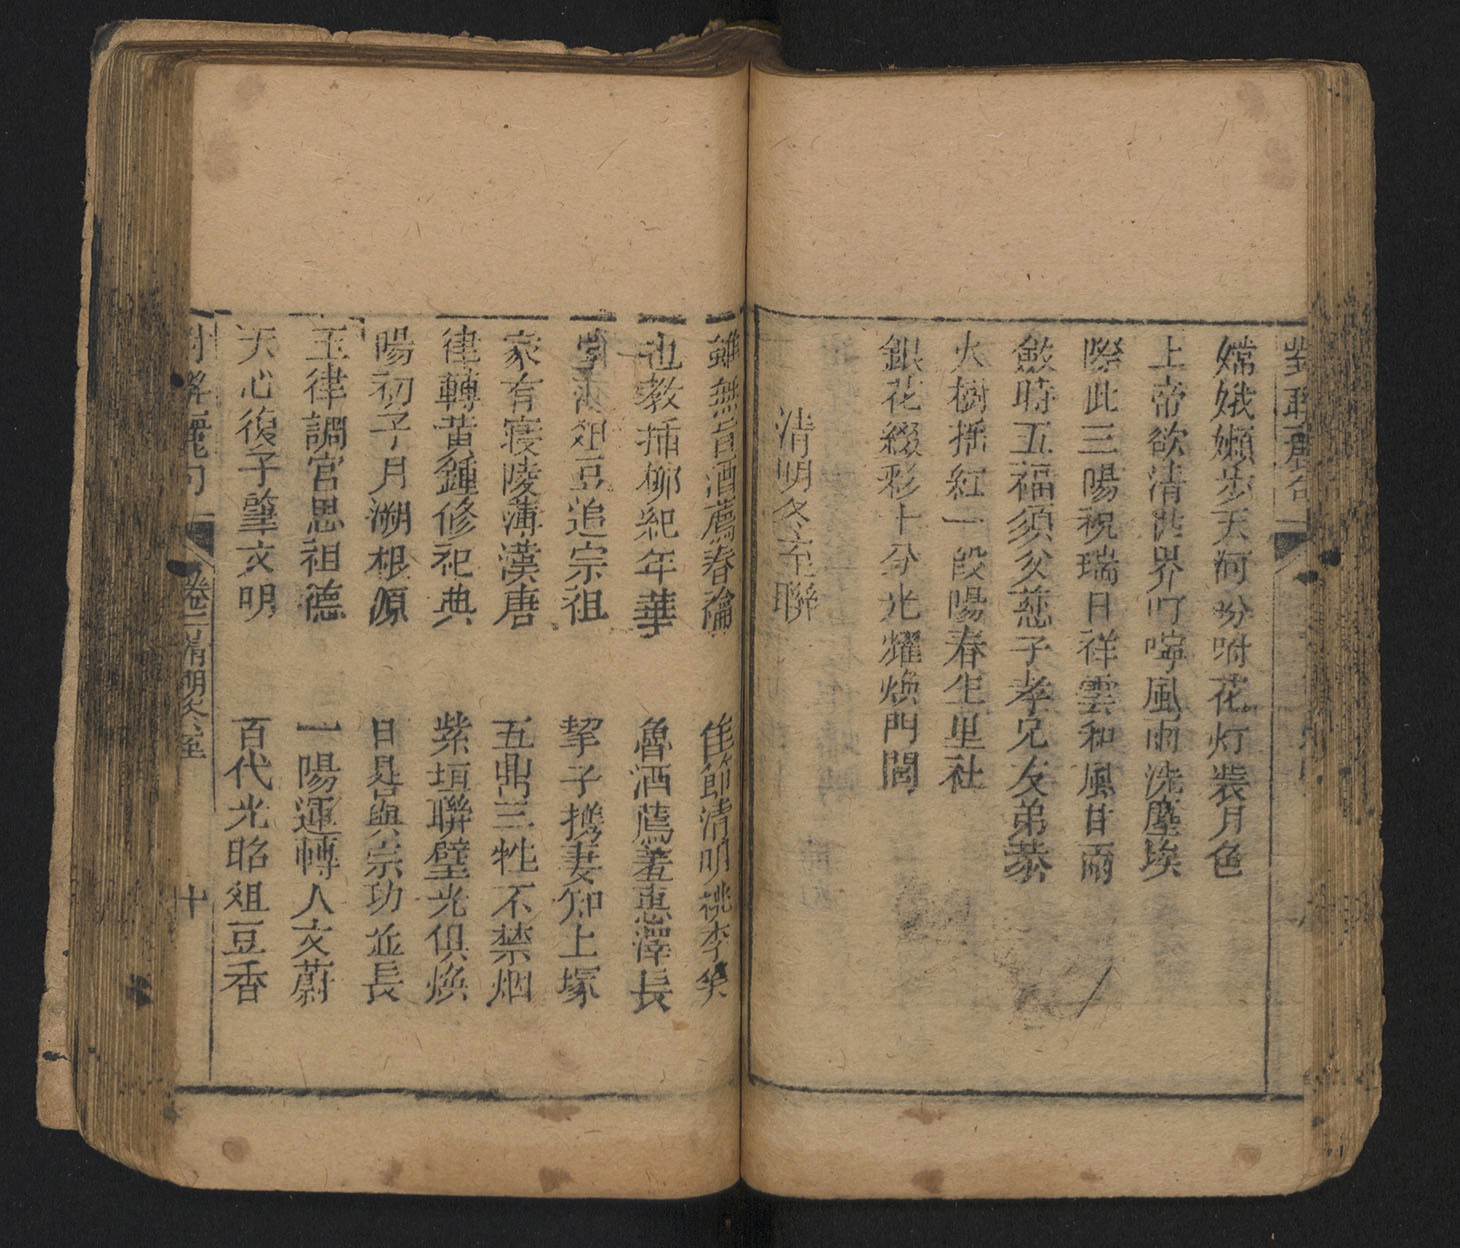 對聯麗句
嫦娥嬾步天河吩咐花灯裝月色
上帝欲清世界叮嚀風雨洗塵埃
際此三陽祝瑞日祥雲和風甘雨
斂時五福須父慈子孝兄友弟恭
火樹揺紅一段陽春生里社
銀花綴彩十分光耀煥門閭
清明冬至聯
雖無旨酒薦春禴 佳節清明桃李笑
也教揷柳紀年華 魯酒薦羞惠澤長
俎豆追宗祖 挈子携妻知上塚
家有寝陵薄漢唐 五鼎三牲不禁烟
律轉黃鍾修祀典 紫垣聯璧光俱煥
陽初子月溯根源 日晷與宗功並長
玉律調宫思祖德 一陽運轉人文蔚
天心復子肇文明 百代光昭俎豆香
對聯麗句 卷二 清明冬至 十